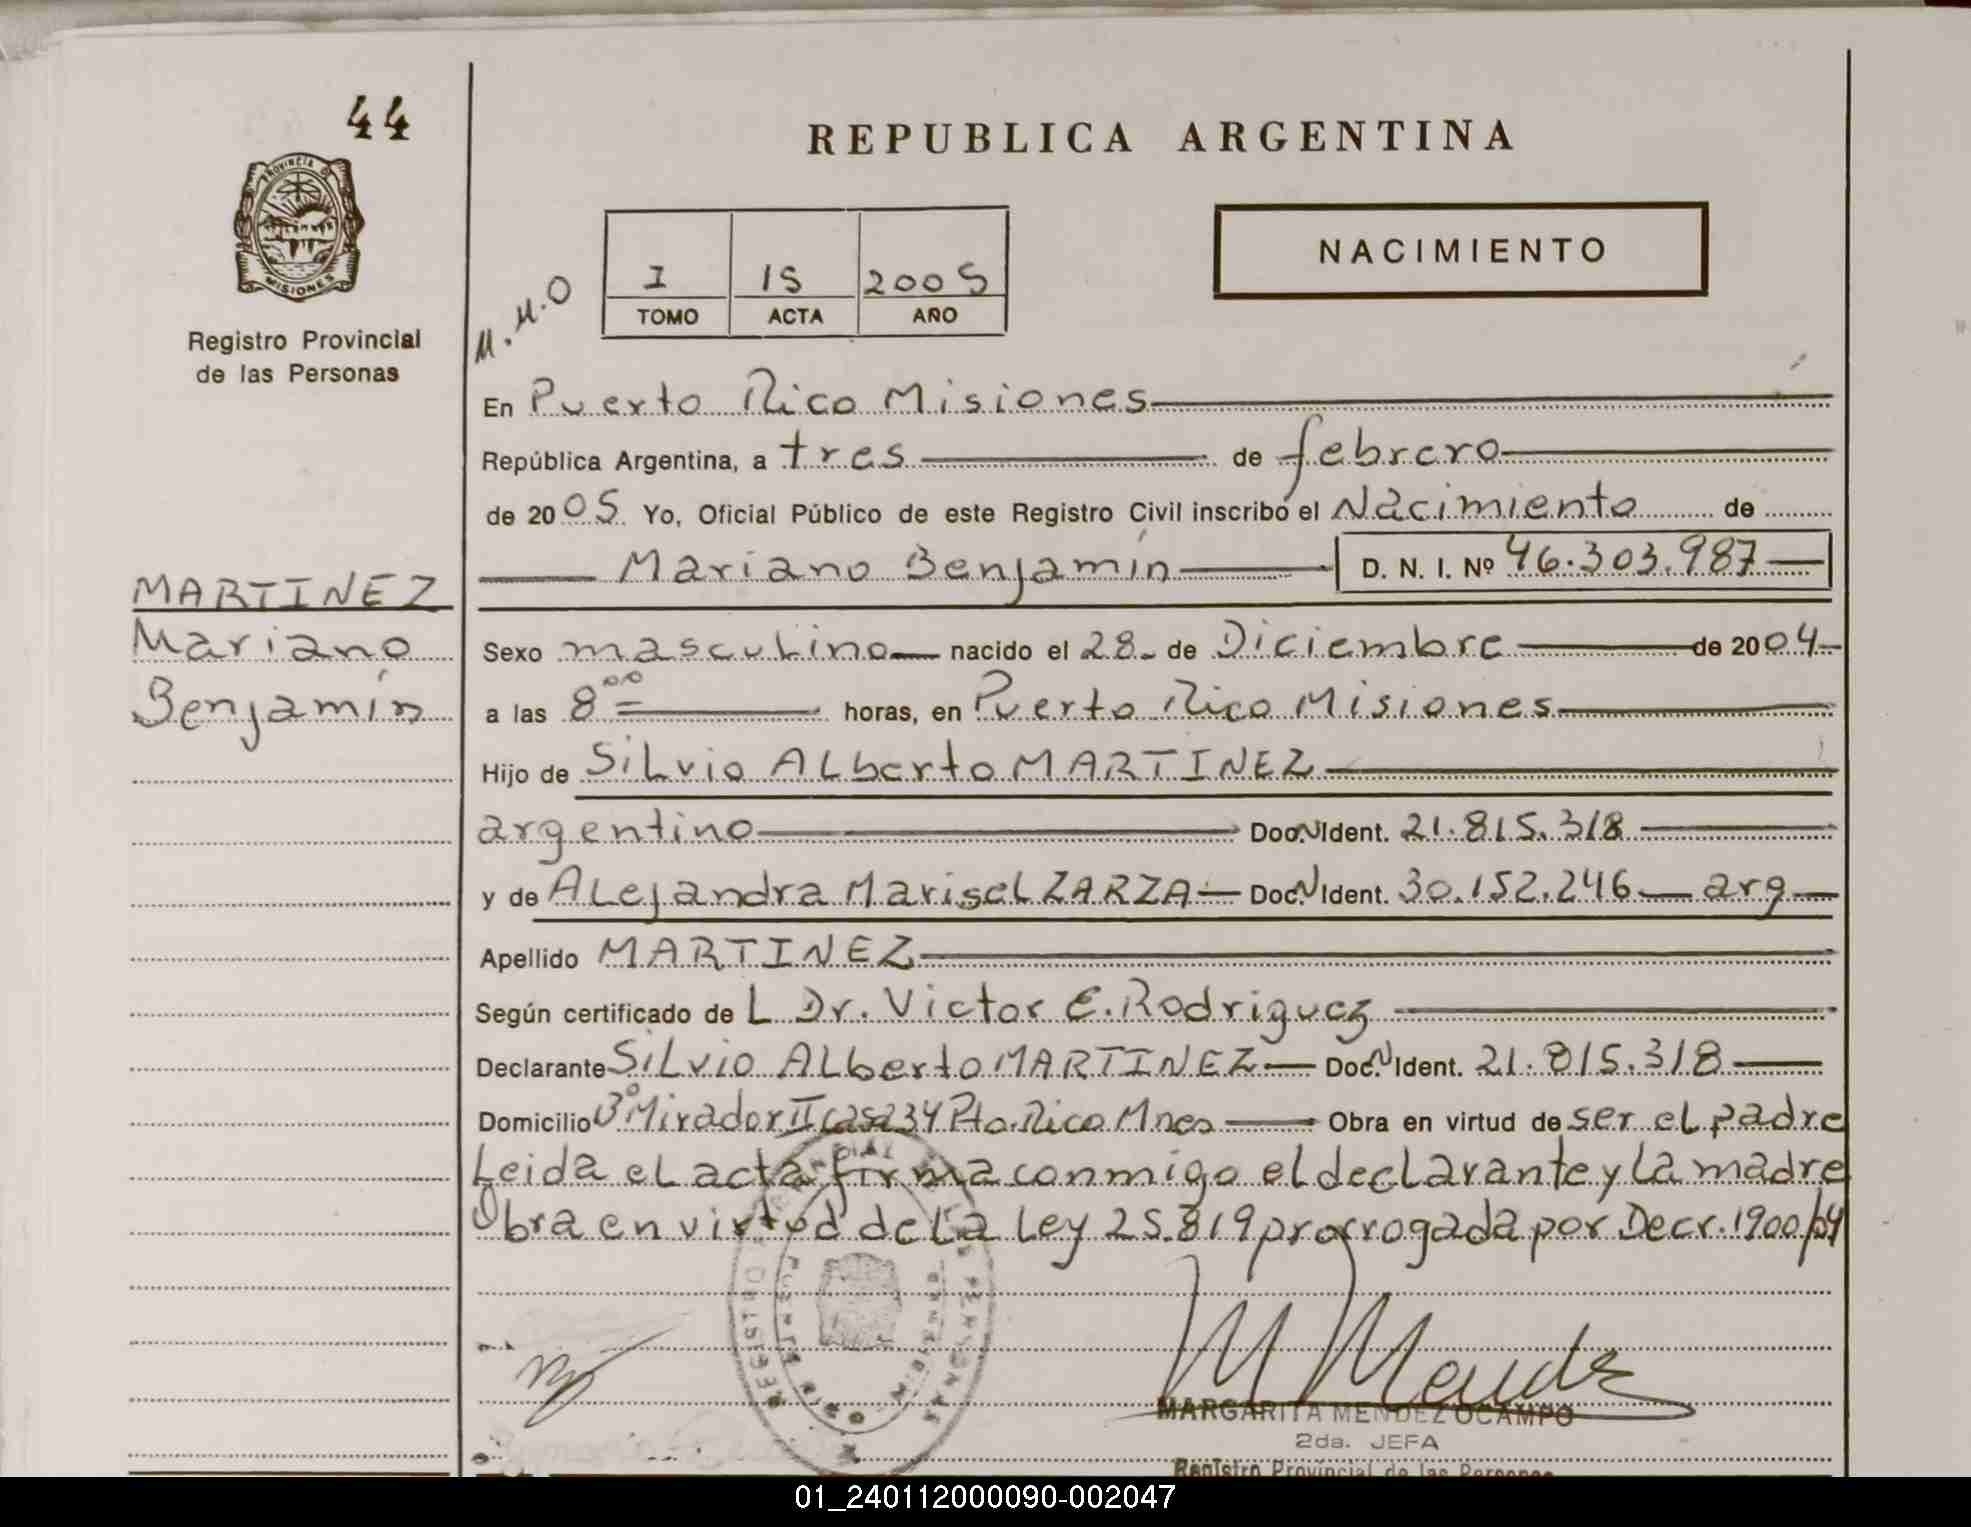 44
REPUBLICA ARGENTINA
PROVINCIA D
MISIONES
Registro Provincial
de las Personas
M.M.O
I 15 2005
TOMO ACTA AÑO
NACIMIENTO
En Puerto Rico Misiones
República Argentina, a tres de febrero
de 2005 Yo, Oficial Público de este Registro Civil inscribo el Nacimiento de
Mariano Benjamín D. N. I. Nº 46.303.987
MARTINEZ
Mariano
Benjamín
Sexo masculino nacido el 28 de Diciembre de 2004
a las 8 00 horas, en Puerto Rico Misiones
Hijo de Silvio Alberto MARTINEZ
argentino Doc. N Ident. 21.815.318
y de Alejandra Marisel ZARZA Doc. N Ident. 30.152.246 arg
Apellido MARTINEZ
Según certificado de L Dr. Victor E. Rodriguez
Declarante Silvio Alberto MARTINEZ Doc. N Ident. 21.815.318
Domicilio Bº Mirador II casa 34 Pto. Rico Mnes Obra en virtud de ser el padre
Leida el acta firma conmigo el declarante y la madre
Obra en virtud de la Ley 25.819 prorrogada por Decr. 1900/04
M Mendz
MARGARITA MENDEZ OCAMPO
2da. JEFA
Registro Provincial de las Personas
REGISTRO PROVINCIAL DE LAS PERSONAS
01_240112000090-002047